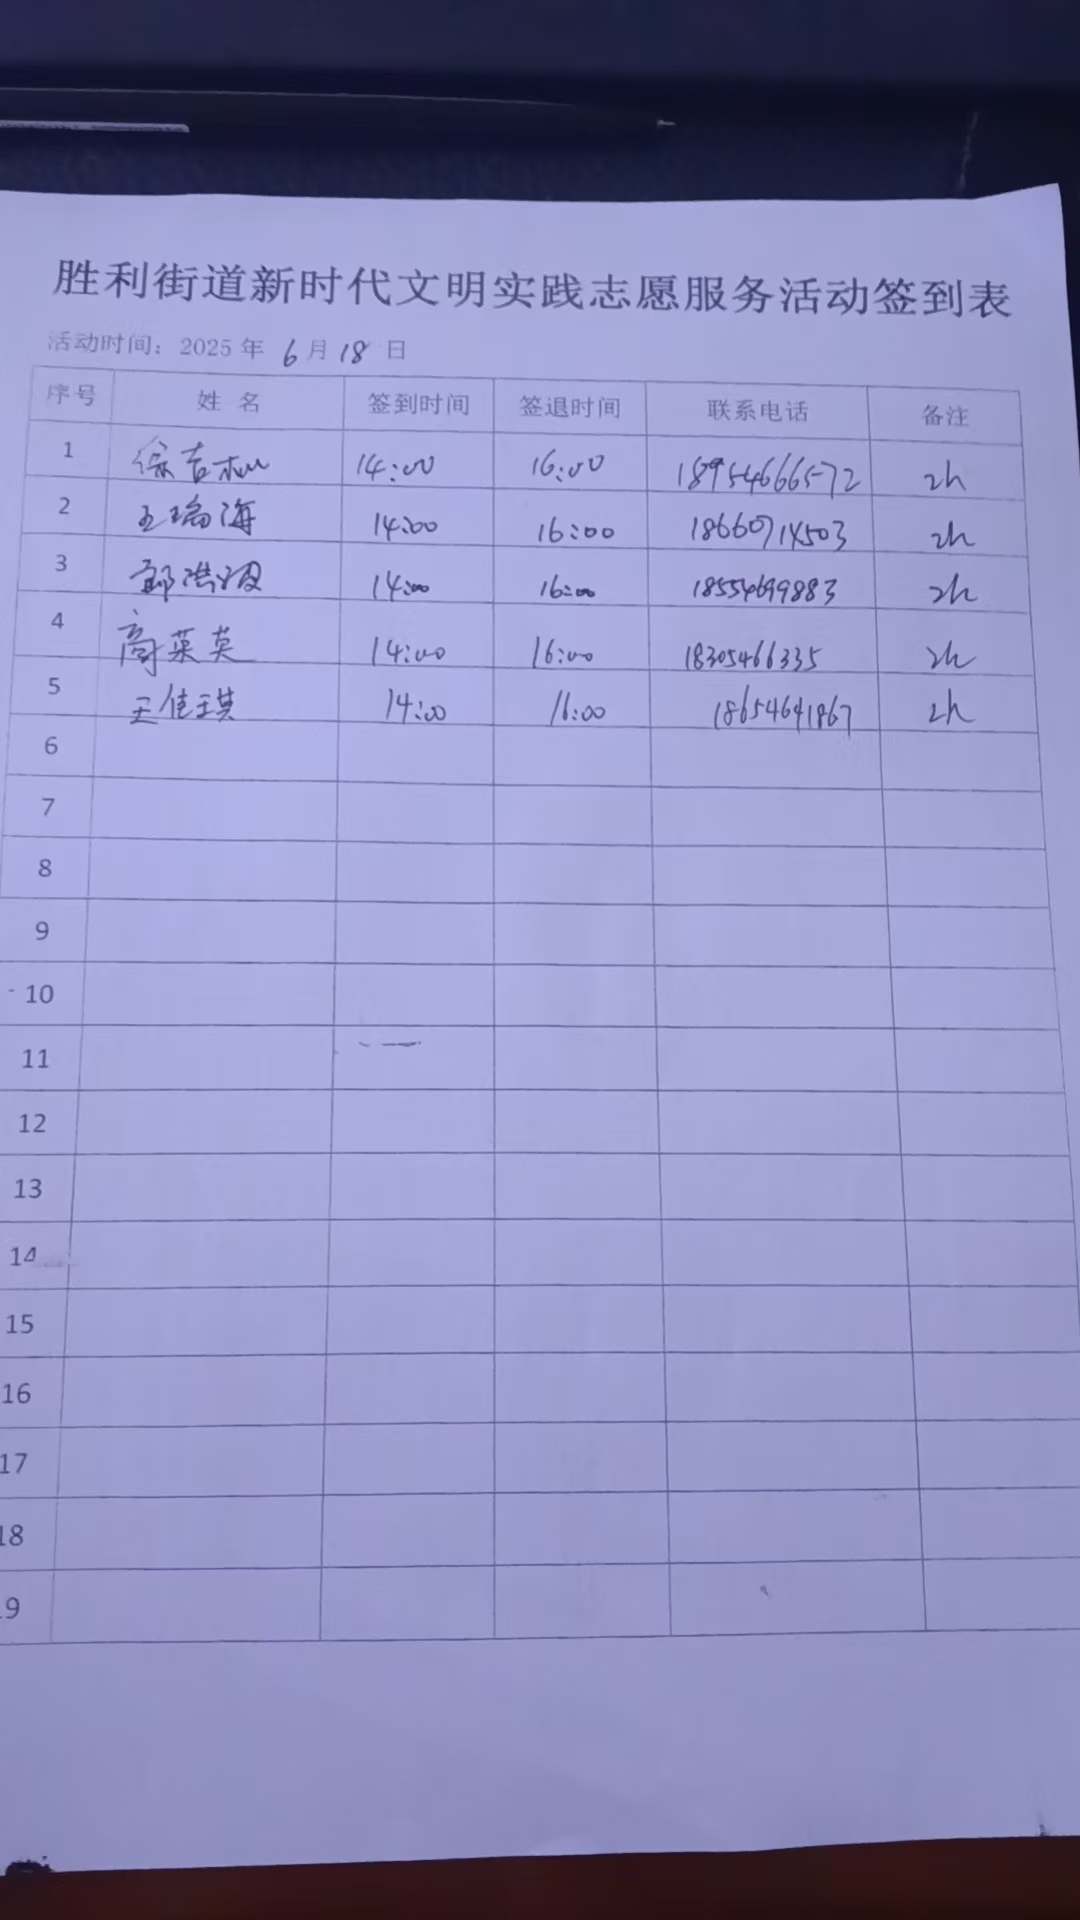 胜利街道新时代文明实践志愿服务活动签到表
活动时间：2025 年 6 月 18 日
序号 姓 名 签到时间 签退时间 联系电话 备注
1 徐吉松 14:00 16:00 18954666572 2h
2 王瑞海 14:00 16:00 18660714503 2h
3 14:00 16:00 18554699883 2h
4 商菜英 14:00 16:00 18305466335 2h
5 王佳琪 14:00 16:00 18654641867 2h
6
7
8
9
10
11
12
13
14
15
16
17
18
19